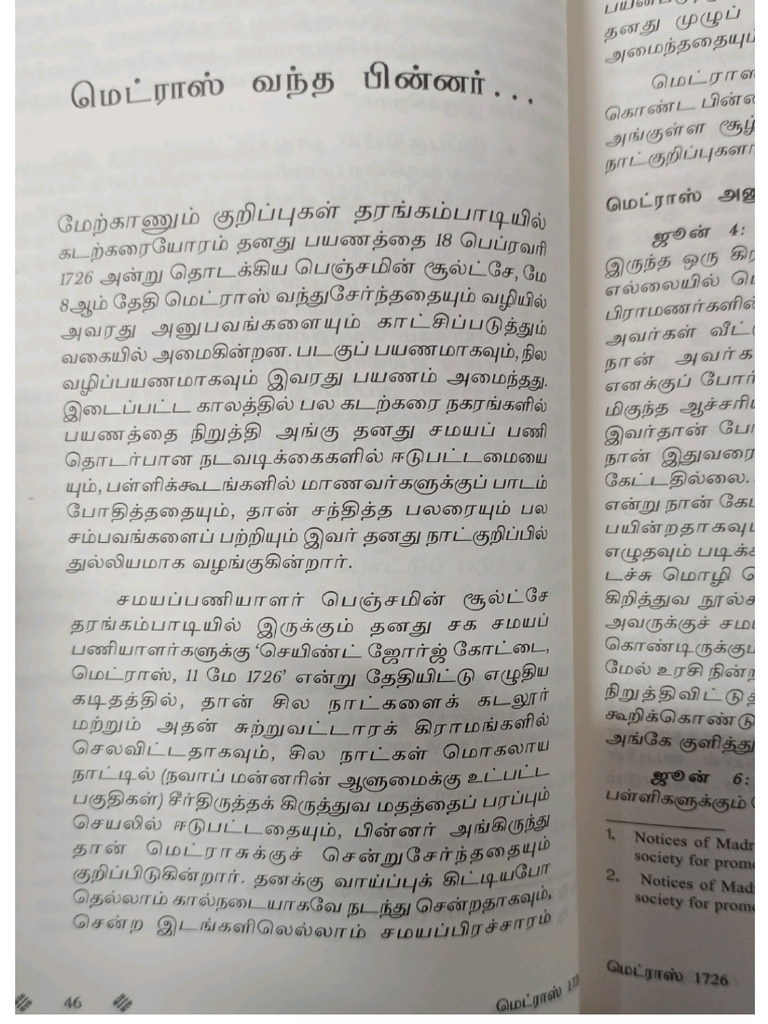 மெட்ராஸ் வந்த பின்னர்...
மேற்காணும் குறிப்புகள் தரங்கம்பாடியில்
கடற்கரையோரம் தனது பயணத்தை 18 பெப்ரவரி
1726 அன்று தொடக்கிய பெஞ்சமின் சூல்ட்சே, மே
8ஆம் தேதி மெட்ராஸ் வந்துசேர்ந்ததையும் வழியில்
அவரது அனுபவங்களையும் காட்சிப்படுத்தும்
வகையில் அமைகின்றன. படகுப் பயணமாகவும், நில
வழிப்பயணமாகவும் இவரது பயணம் அமைந்தது.
இடைப்பட்ட காலத்தில் பல கடற்கரை நகரங்களில்
பயணத்தை நிறுத்தி அங்கு தனது சமயப் பணி
தொடர்பான நடவடிக்கைகளில் ஈடுபட்டமையை
யும், பள்ளிக்கூடங்களில் மாணவர்களுக்குப் பாடம்
போதித்ததையும், தான் சந்தித்த பலரையும் பல
சம்பவங்களைப் பற்றியும் இவர் தனது நாட்குறிப்பில்
துல்லியமாக வழங்குகின்றார்.
சமயப்பணியாளர் பெஞ்சமின் சூல்ட்சே
தரங்கம்பாடியில் இருக்கும் தனது சக சமயப்
பணியாளர்களுக்கு ‘செயிண்ட் ஜோர்ஜ் கோட்டை,
மெட்ராஸ், 11 மே 1726’ என்று தேதியிட்டு எழுதிய
கடிதத்தில், தான் சில நாட்களைக் கடலூர்
மற்றும் அதன் சுற்றுவட்டாரக் கிராமங்களில்
செலவிட்டதாகவும், சில நாட்கள் மொகலாய
நாட்டில் (நவாப் மன்னரின் ஆளுமைக்கு உட்பட்ட
பகுதிகள்) சீர்திருத்தக் கிருத்துவ மதத்தைப் பரப்பும்
செயலில் ஈடுபட்டதையும், பின்னர் அங்கிருந்து
தான் மெட்ராசுக்குச் சென்றுசேர்ந்ததையும்
குறிப்பிடுகின்றார். தனக்கு வாய்ப்புக் கிட்டியபோ
தெல்லாம் கால்நடையாகவே நடந்து சென்றதாகவும்,
சென்ற இடங்களிலெல்லாம் சமயப்பிரச்சாரம்
46
மெட்ராஸ்
தனது முழுப்
அமைந்ததையும்
மெட்ராஸ்
கொண்ட
அங்குள்ள
மெட்ராஸ்
ஜூன் 4:
இருந்த ஒரு
எல்லையில்
பிராமணர்களில்
அவர்கள்
நான்
எனக்குப்
மிகுந்த
இவர்தான்
நான்
கேட்டதில்லை.
என்று நான்
எழுதவும்
டச்சு மொழி
கிறித்துவ
அவருக்குச்
மேல் உரசி
அங்கே
ஜூன் 6:
பள்ளிகளுக்கும்
1. Notices of
society for
2. Notices of
society for
மெட்ராஸ் 1726